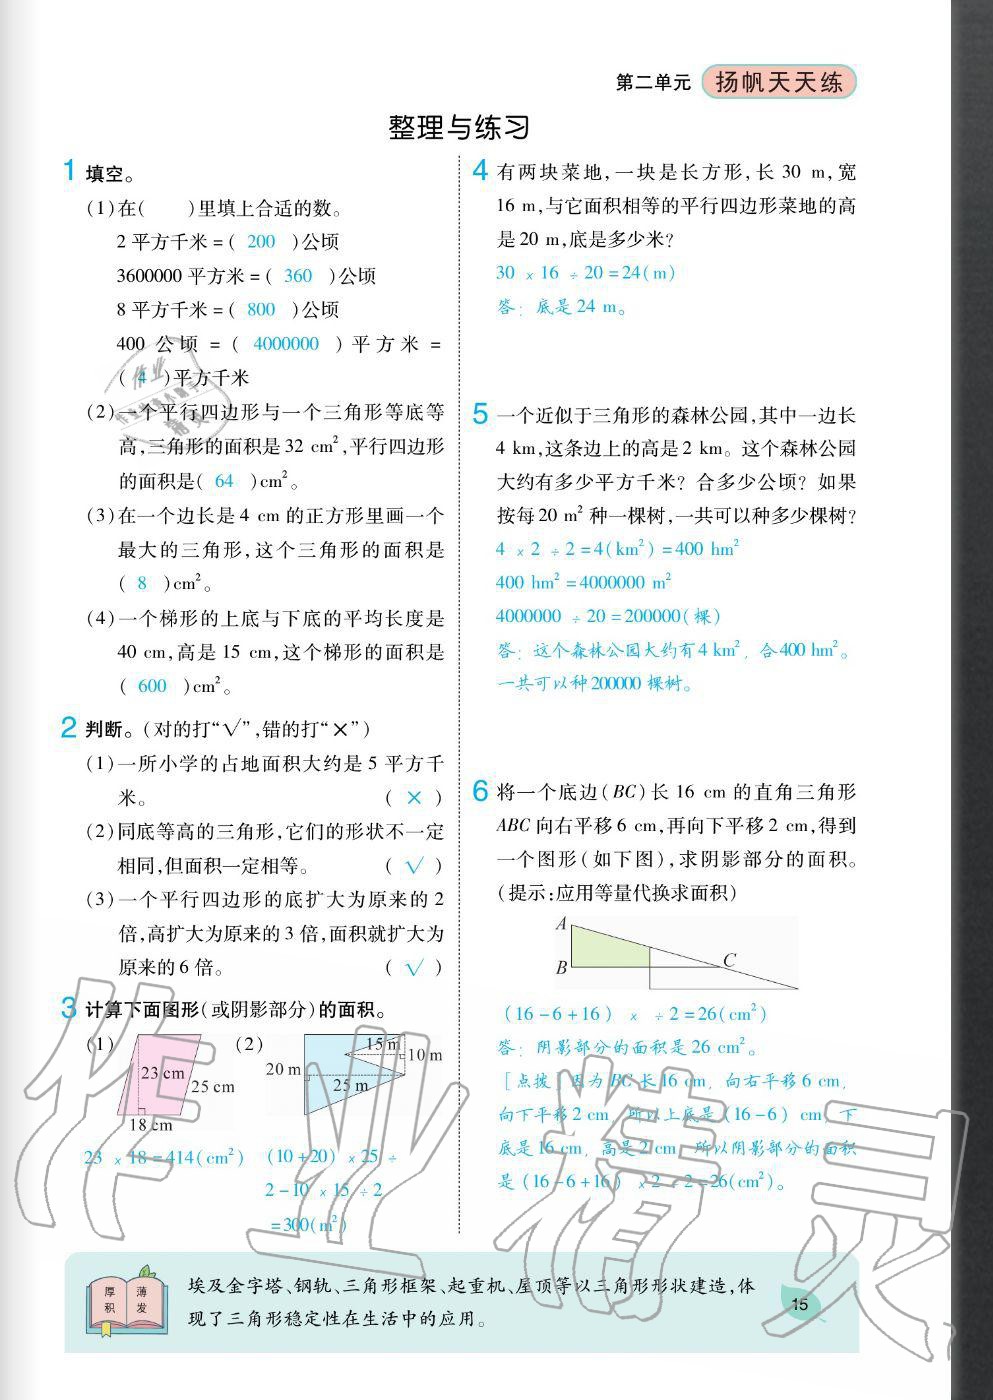 第二单元 扬帆天天练
整理与练习
1 填空。
(1)在(  )里填上合适的数。
2平方千米=( 200 )公顷
3600000平方米=( 360 )公顷
8平方千米=( 800 )公顷
400公顷=( 4000000 )平方米=
( 4 )平方千米
(2)一个平行四边形与一个三角形等底等
高,三角形的面积是32 cm²,平行四边形
的面积是( 64 )cm²。
(3)在一个边长是4 cm的正方形里画一个
最大的三角形,这个三角形的面积是
( 8 )cm²。
(4)一个梯形的上底与下底的平均长度是
40 cm,高是15 cm,这个梯形的面积是
( 600 )cm²。
2 判断。(对的打“√”,错的打“×”)
(1)一所小学的占地面积大约是5平方千
米。 ( × )
(2)同底等高的三角形,它们的形状不一定
相同,但面积一定相等。 ( √ )
(3)一个平行四边形的底扩大为原来的2
倍,高扩大为原来的3倍,面积就扩大为
原来的6倍。 ( √ )
3 计算下面图形(或阴影部分)的面积。
(1) 23 cm 25 cm 18 cm
(2) 20 m 15 m 10 m 25 m
23 × 18 = 414(cm²)
(10+20) × 25 ÷
2-10 × 15 ÷ 2
=300(m²)
4 有两块菜地,一块是长方形,长30 m,宽
16 m,与它面积相等的平行四边形菜地的高
是20 m,底是多少米?
30 × 16 ÷ 20 = 24(m)
答：底是24 m。
5 一个近似于三角形的森林公园,其中一边长
4 km,这条边上的高是2 km。这个森林公园
大约有多少平方千米？合多少公顷？如果
按每20 m²种一棵树,一共可以种多少棵树?
4 × 2 ÷ 2 = 4(km²) = 400 hm²
400 hm² = 4000000 m²
4000000 ÷ 20 = 200000(棵)
答：这个森林公园大约有4 km²，合400 hm²。
一共可以种200000棵树。
6 将一个底边(BC)长16 cm的直角三角形
ABC向右平移6 cm,再向下平移2 cm,得到
一个图形(如下图),求阴影部分的面积。
(提示:应用等量代换求面积)
A
B
C
(16-6+16) × ÷ 2 = 26(cm²)
答：阴影部分的面积是26 cm²。
[点拨]因为BC长16 cm，向右平移6 cm，
向下平移2 cm，所以上底是(16-6) cm，下
底是16 cm，高是2 cm，所以阴影部分的面积
是(16-6+16) × 2 ÷ 2=26(cm²)。
厚积 薄发
埃及金字塔、钢轨、三角形框架、起重机、屋顶等以三角形形状建造,体
现了三角形稳定性在生活中的应用。
15
作业精灵